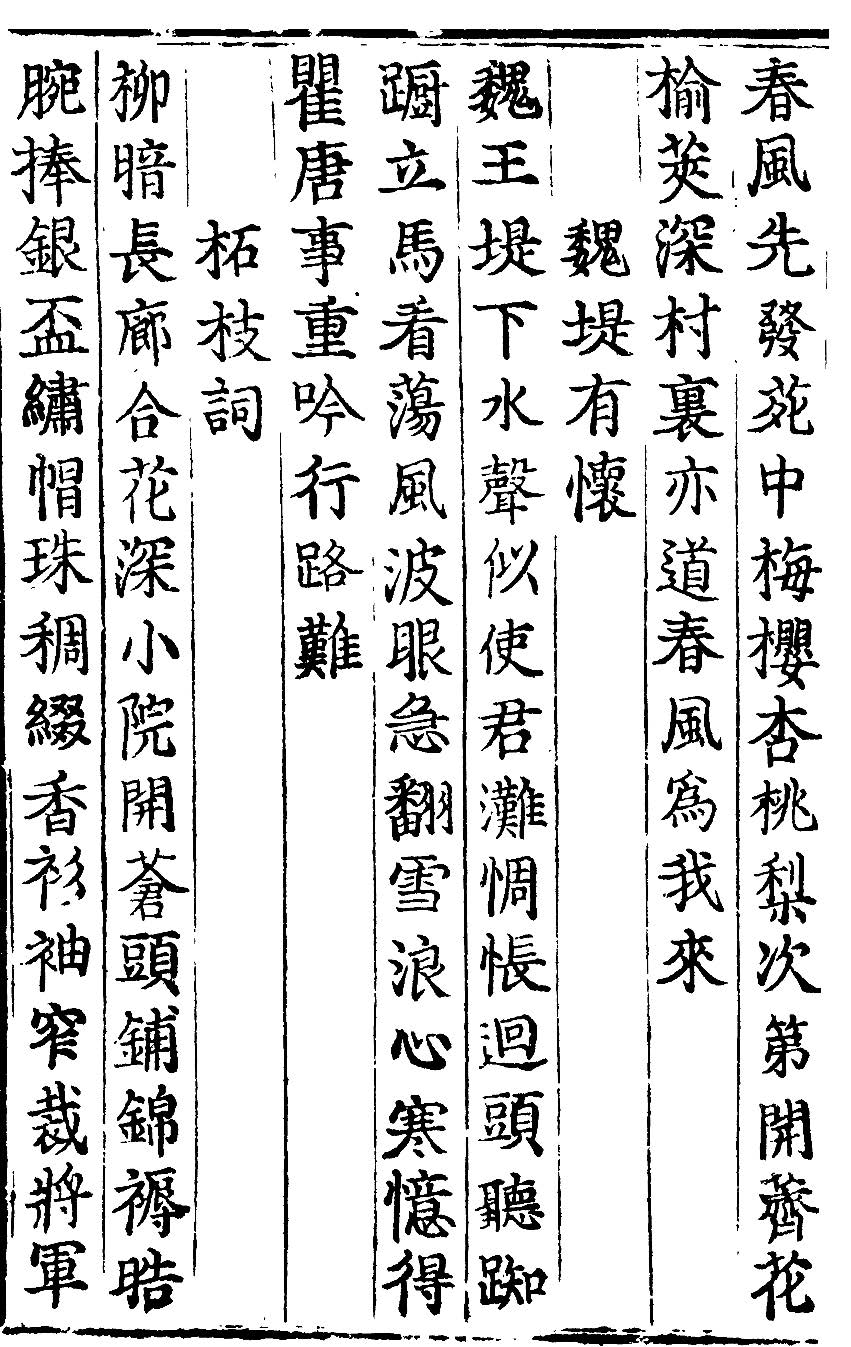 春風先發苑中梅櫻杏桃梨次第開薺花
榆莢深村裏亦道春風爲我來
魏堤有懷
魏王堤下水聲似使君灘惆悵迴頭聽踟
蹰立馬看蕩風波眼急翻雪浪心寒憶得
瞿唐事重吟行路難
柘枝詞
柳暗長廊合花深小院開蒼頭鋪錦褥晧
腕捧銀盃繡帽珠稠綴香衫袖窄裁將軍